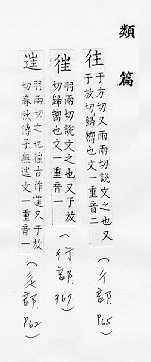 類篇
往
于方切又雨兩切說文之也又
于放切歸嚮也文一重音二
(彳部 P65)
徃
羽兩切說文之也又于放
切歸嚮也文一重音一
(行部 P69)
羽兩切之也往古作迬又于放
切春秋傳子無迋文一重音一
(辵部 P62)